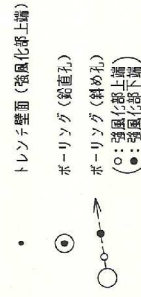 トレンチ壁面（強風化部上端）
ボーリング（鉛直孔）
ボーリング（斜め孔）
（○：強風化部上端）
（●：強風化部下端）